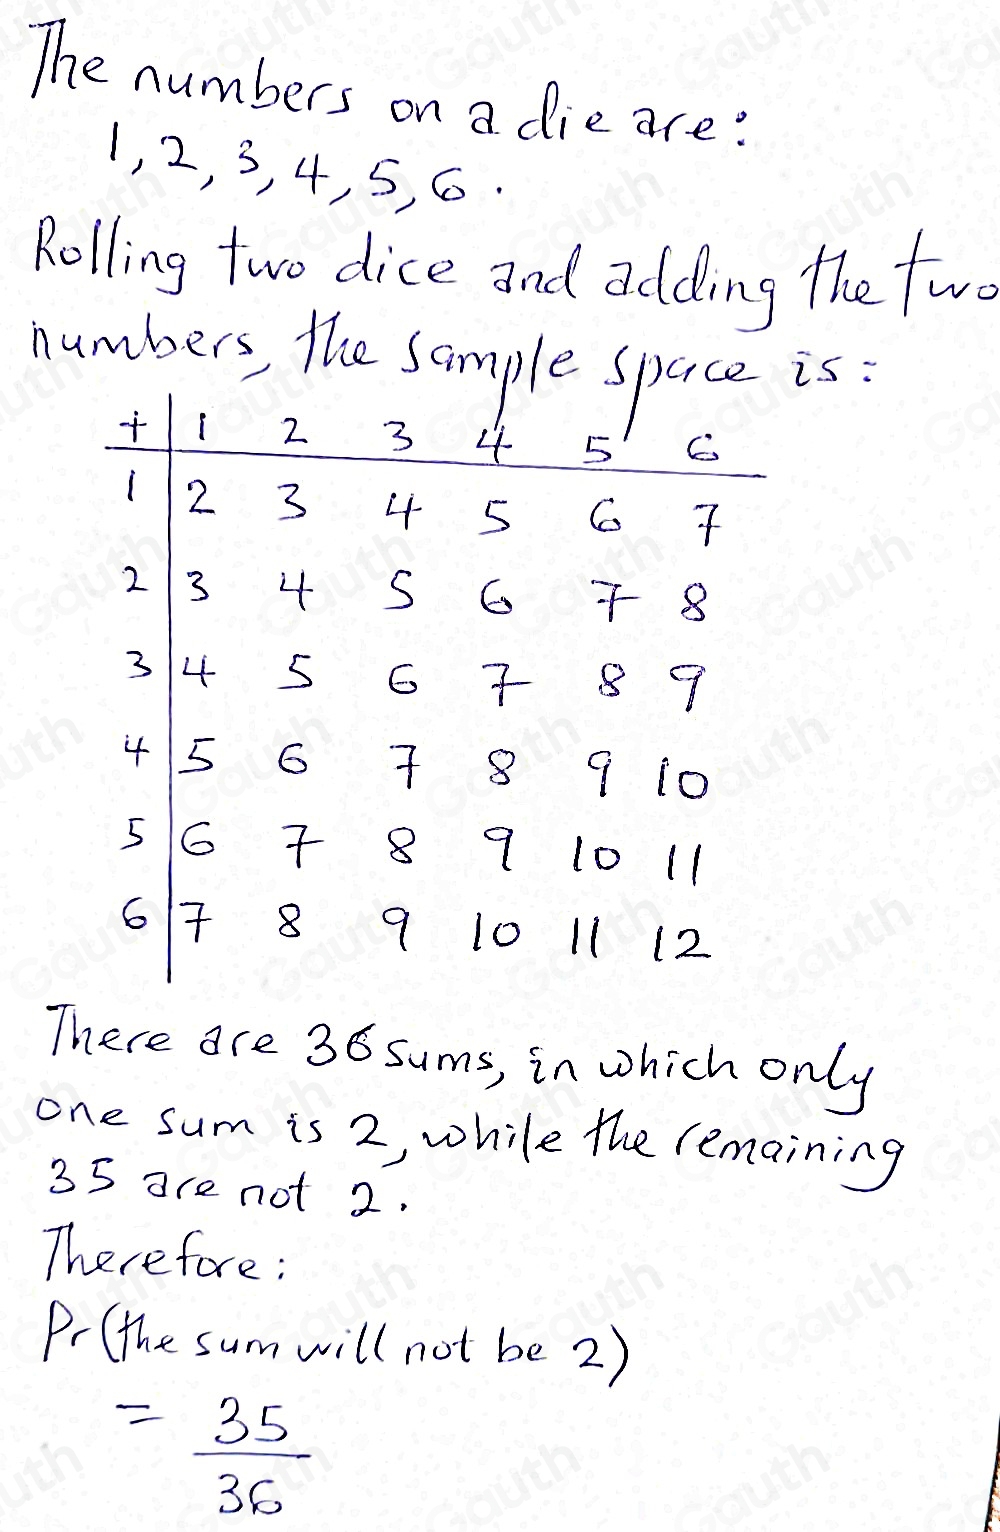 The numbers on a die are:
1, 2, 3, 4, 5, 6.
Rolling two dice and adding the two
numbers, the sample space is:
+ 1 2 3 4 5 6
1 2 3 4 5 6 7
2 3 4 5 6 7 8
3 4 5 6 7 8 9
4 5 6 7 8 9 10
5 6 7 8 9 10 11
6 7 8 9 10 11 12
There are 36 sums, in which only
one sum is 2, while the remaining
35 are not 2.
Therefore:
Pr(the sum will not be 2)
= 35
36